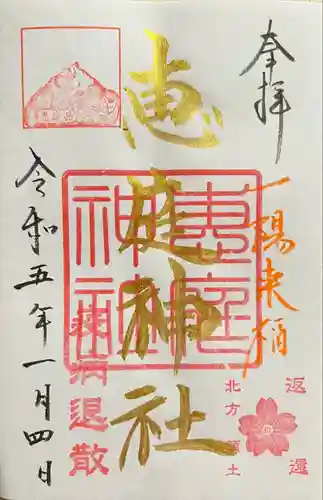 奉拝
一陽来福
返還
北方領土
恵庭神社
恵庭神社
疫病退散
令和五年一月四日